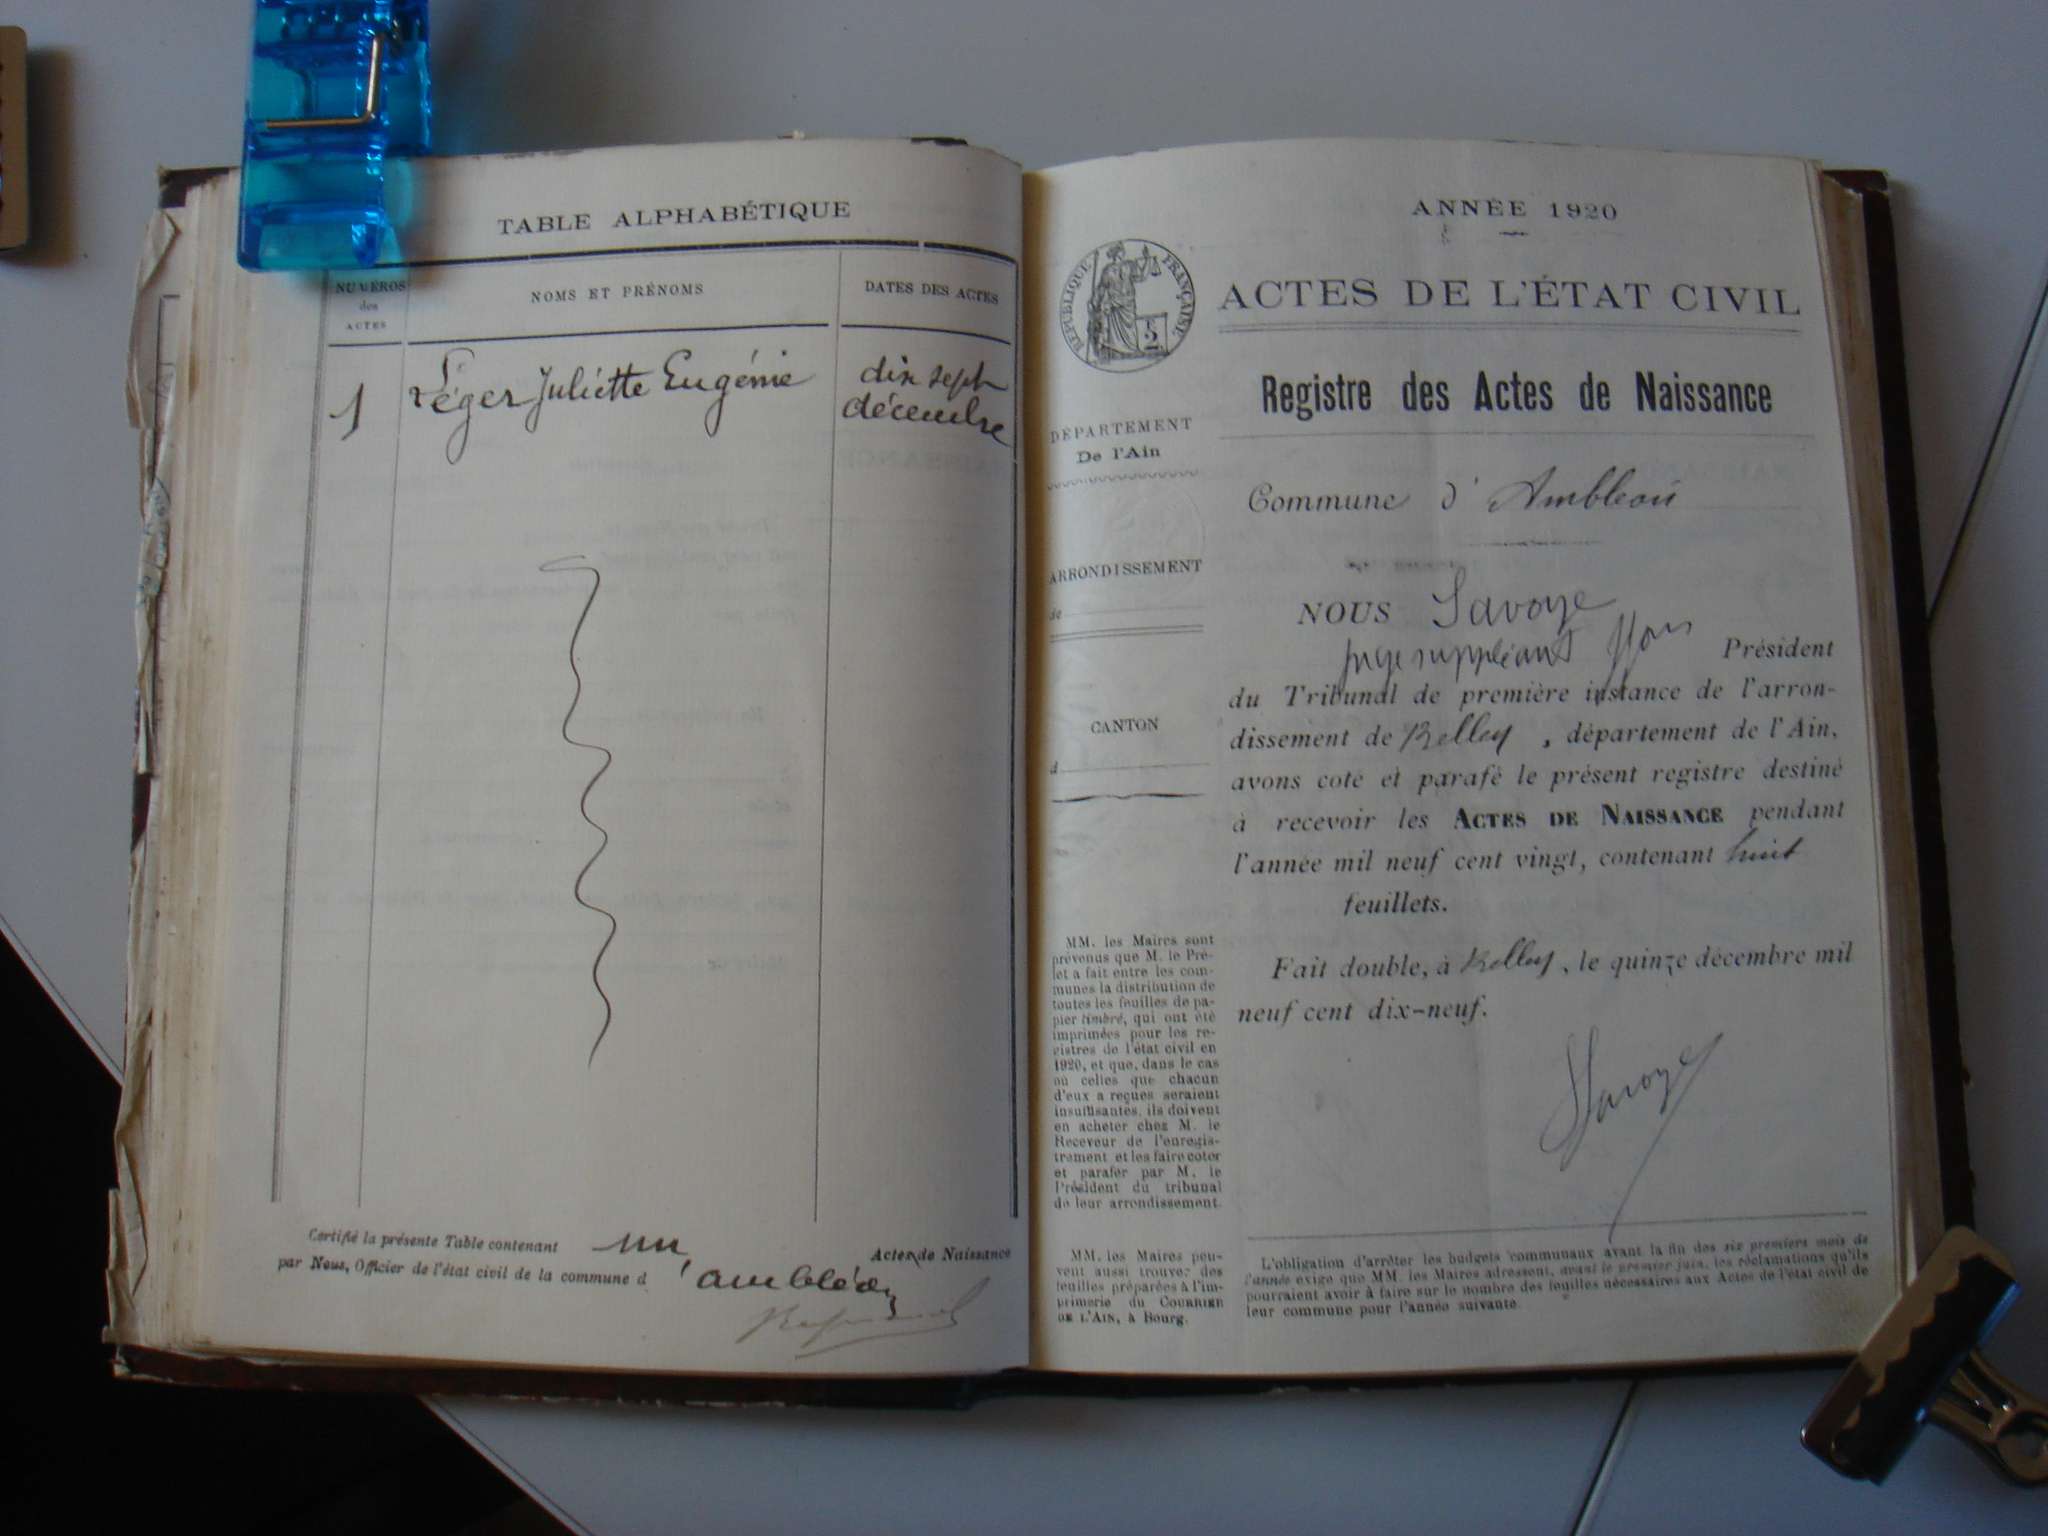 TABLE ALPHABÉTIQUE
NUMÉROS
des
ACTES
NOMS ET PRÉNOMS
DATES DES ACTES
1
Léger Juliette Eugénie
dix sept
décembre
Certifié la présente Table contenant un Actes de Naissance
par Nous, Officier de l'état civil de la commune d'ambléon
ANNÉE 1920
RÉPUBLIQUE FRANÇAISE
5
2
ACTES DE L'ÉTAT CIVIL
Registre des Actes de Naissance
DÉPARTEMENT
De l'Ain
Commune d'Ambléon
ARRONDISSEMENT
de
CANTON
d
NOUS Savoye
juge suppléant Président
du Tribunal de première instance de l'arron-
dissement de Belley, département de l'Ain,
avons coté et parafé le présent registre destiné
à recevoir les ACTES DE NAISSANCE pendant
l'année mil neuf cent vingt, contenant huit
feuillets.
Fait double, à Belley, le quinze décembre mil
neuf cent dix-neuf.
Savoye
MM. les Maires sont
prévenus que M. le Pré-
fet a fait entre les com-
munes la distribution de
toutes les feuilles de pa-
pier timbré, qui ont été
imprimées pour les re-
gistres de l'état civil en
1920, et que, dans le cas
où celles que chacun
d'eux a reçues seraient
insuffisantes, ils doivent
en acheter chez M. le
Receveur de l'enregis-
trement et les faire coter
et parafer par M. le
Président du tribunal
de leur arrondissement.
MM. les Maires peu-
vent aussi trouver des
feuilles préparées à l'im-
primerie du COURRIER
DE L'AIN, à Bourg.
L'obligation d'arrêter les budgets communaux avant la fin des six premiers mois de
l'année exige que MM. les Maires adressent, avant le premier juin, les réclamations qu'ils
pourraient avoir à faire sur le nombre des feuilles nécessaires aux Actes de l'état civil de
leur commune pour l'année suivante.